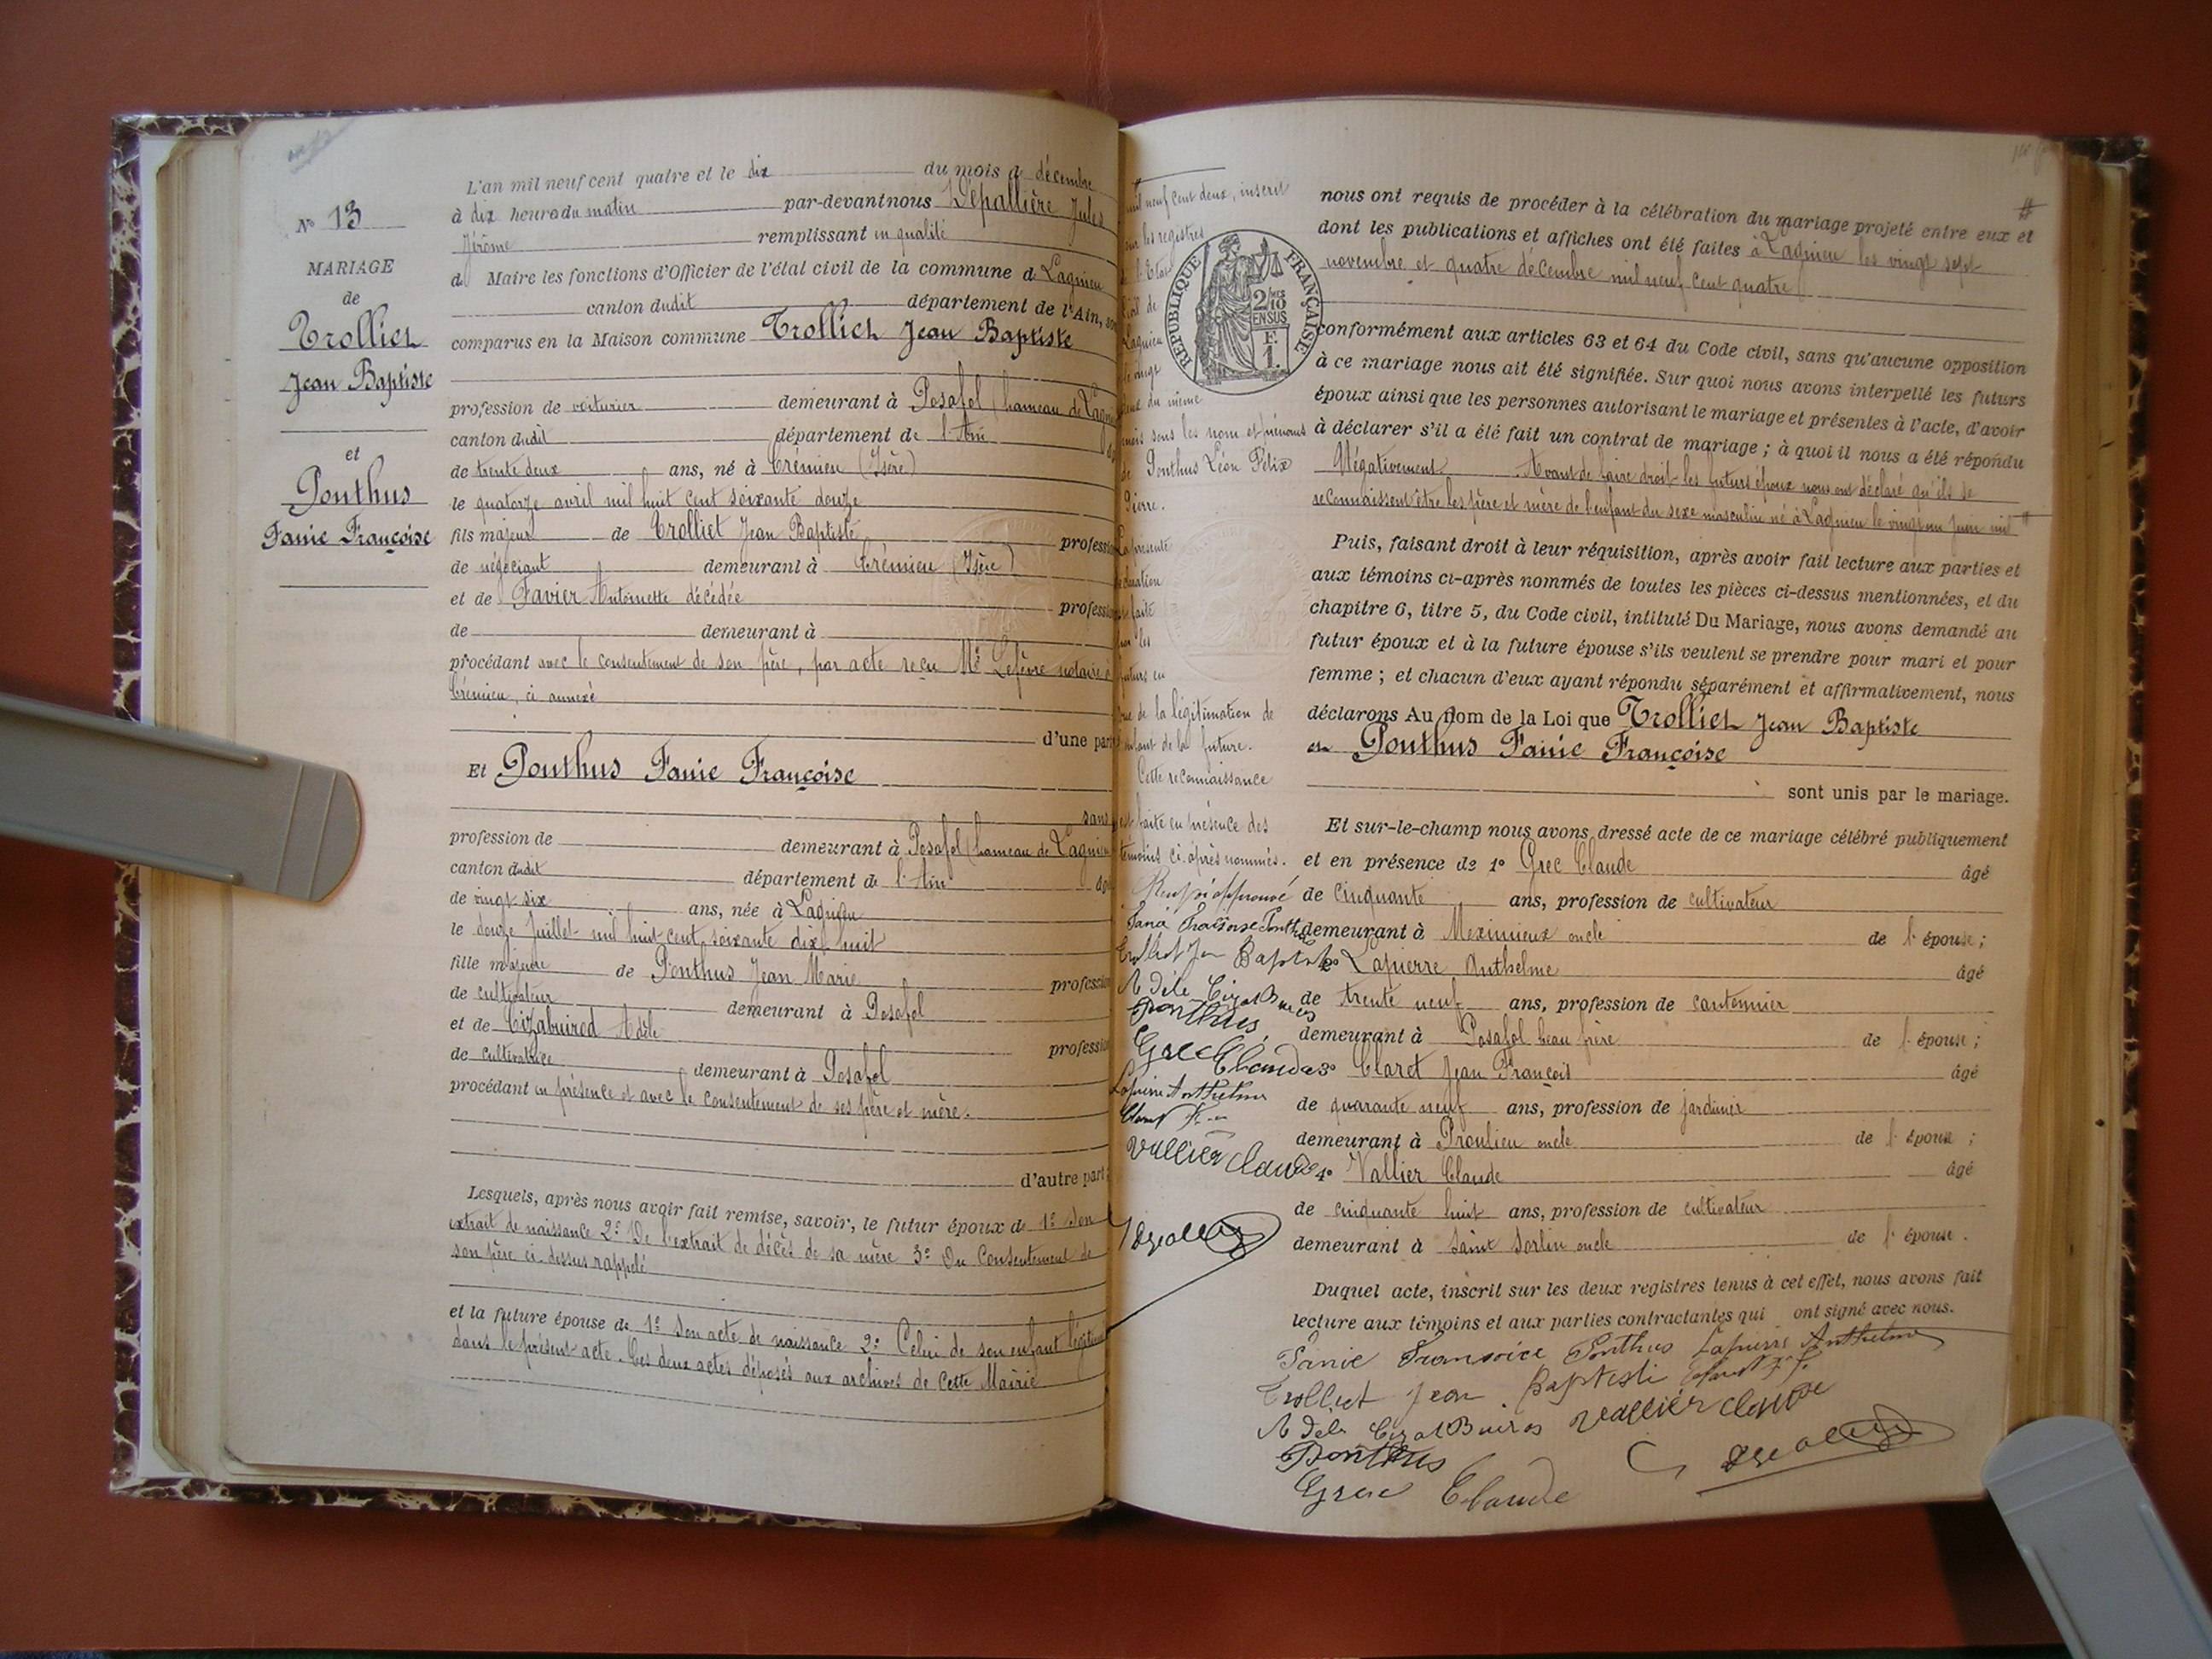 L'an mil neuf cent quatre et le dix du mois de décembre
à dix heures du matin par-devant nous Dépallière Jules
Jérôme remplissant en qualité
de Maire les fonctions d'Officier de l'état civil de la commune de Lagnieu
canton dudit département de l'Ain, sont
comparus en la Maison commune Trolliet Jean Baptiste
N° 13
MARIAGE
de
Trolliet
Jean Baptiste
et
Ponthus
Fanie Françoise
profession de voiturier demeurant à Posafol (hameau de Lagnieu
canton dudit département de l'Ain
de trente deux ans, né à Crémieu (Isère)
le quatorze avril mil huit cent soixante douze
fils majeur de Trolliet Jean Baptiste profession
de négociant demeurant à Crémieu (Isère)
et de Favier Antoinette décédée profession
de demeurant à
procédant avec le consentement de son père, par acte reçu Me Lefèvre notaire à
Crémieu, ci annexé
d'une part
Et Ponthus Fanie Françoise
sans
profession de demeurant à Posafol (hameau de Lagnieu
canton dudit département de l'Ain
de vingt six ans, née à Lagnieu
le douze Juillet mil huit cent soixante dix huit
fille majeure de Ponthus Jean Marie profession
de cultivateur demeurant à Posafol
et de Cizabuirod Adèle profession
de cultivatrice demeurant à Posafol
procédant en présence et avec le consentement de ses père et mère.
d'autre part;
Lesquels, après nous avoir fait remise, savoir, le futur époux de 1° Son
extrait de naissance 2° De l'extrait de décès de sa mère 3° Du Consentement de
son père ci-dessus rappelé
et la future épouse de 1° Son acte de naissance 2° Celui de son enfant légitimé
dans le présent acte. Ces deux actes déposés aux archives de cette Mairie
mil neuf cent deux, inscrit
sur les registres
de l'Etat
civil de
Lagnieu
le vingt
deux du même
mois sous les nom et prénoms
de Ponthus Léon Félix
Pierre.
La présente
déclaration
est faite
par les
futurs en
vue de la légitimation de
l'enfant de la future.
Cette reconnaissance
est faite en présence des
témoins ci-après nommés.
Renvoi approuvé
Fanie Francoise Ponthus
Trolliet Jean Baptiste
Adèle
Ponthus
Grec Claude
Lapierre Anthelme
Vallier Claude
RÉPUBLIQUE FRANÇAISE
2/10 EN SUS
F.
1.
nous ont requis de procéder à la célébration du mariage projeté entre eux et
dont les publications et affiches ont été faites à Lagnieu les vingt sept
novembre et quatre décembre mil neuf cent quatre
conformément aux articles 63 et 64 du Code civil, sans qu'aucune opposition
à ce mariage nous ait été signifiée. Sur quoi nous avons interpellé les futurs
époux ainsi que les personnes autorisant le mariage et présentes à l'acte, d'avoir
à déclarer s'il a été fait un contrat de mariage ; à quoi il nous a été répondu
Négativement Avant de faire droit les futurs époux nous ont déclaré qu'ils se
reconnaissent être les père et mère de l'enfant du sexe masculin né à Lagnieu le vingt un juin mil #
Puis, faisant droit à leur réquisition, après avoir fait lecture aux parties et
aux témoins ci-après nommés de toutes les pièces ci-dessus mentionnées, et du
chapitre 6, titre 5, du Code civil, intitulé Du Mariage, nous avons demandé au
futur époux et à la future épouse s'ils veulent se prendre pour mari et pour
femme ; et chacun d'eux ayant répondu séparément et affirmativement, nous
déclarons Au nom de la Loi que Trolliet Jean Baptiste
et Ponthus Fanie Françoise
sont unis par le mariage.
Et sur-le-champ nous avons dressé acte de ce mariage célébré publiquement
et en présence de 1° Grec Claude âgé
de cinquante ans, profession de cultivateur
demeurant à Meximieux oncle de l'épouse ;
2° Lapierre Anthelme âgé
de trente neuf ans, profession de cantonnier
demeurant à Posafol beau frère de l'épouse ;
3° Claret Jean François âgé
de quarante neuf ans, profession de jardinier
demeurant à Proulieu oncle de l'épouse ;
4° Vallier Claude âgé
de cinquante huit ans, profession de cultivateur
demeurant à Saint Sorlin oncle de l'épouse.
Duquel acte, inscrit sur les deux registres tenus à cet effet, nous avons fait
lecture aux témoins et aux parties contractantes qui ont signé avec nous.
Fanie Francoise Ponthus Lapierre Anthelme
Trolliet Jean Baptiste
Adèle Vallier Claude
Ponthus
Grec Claude